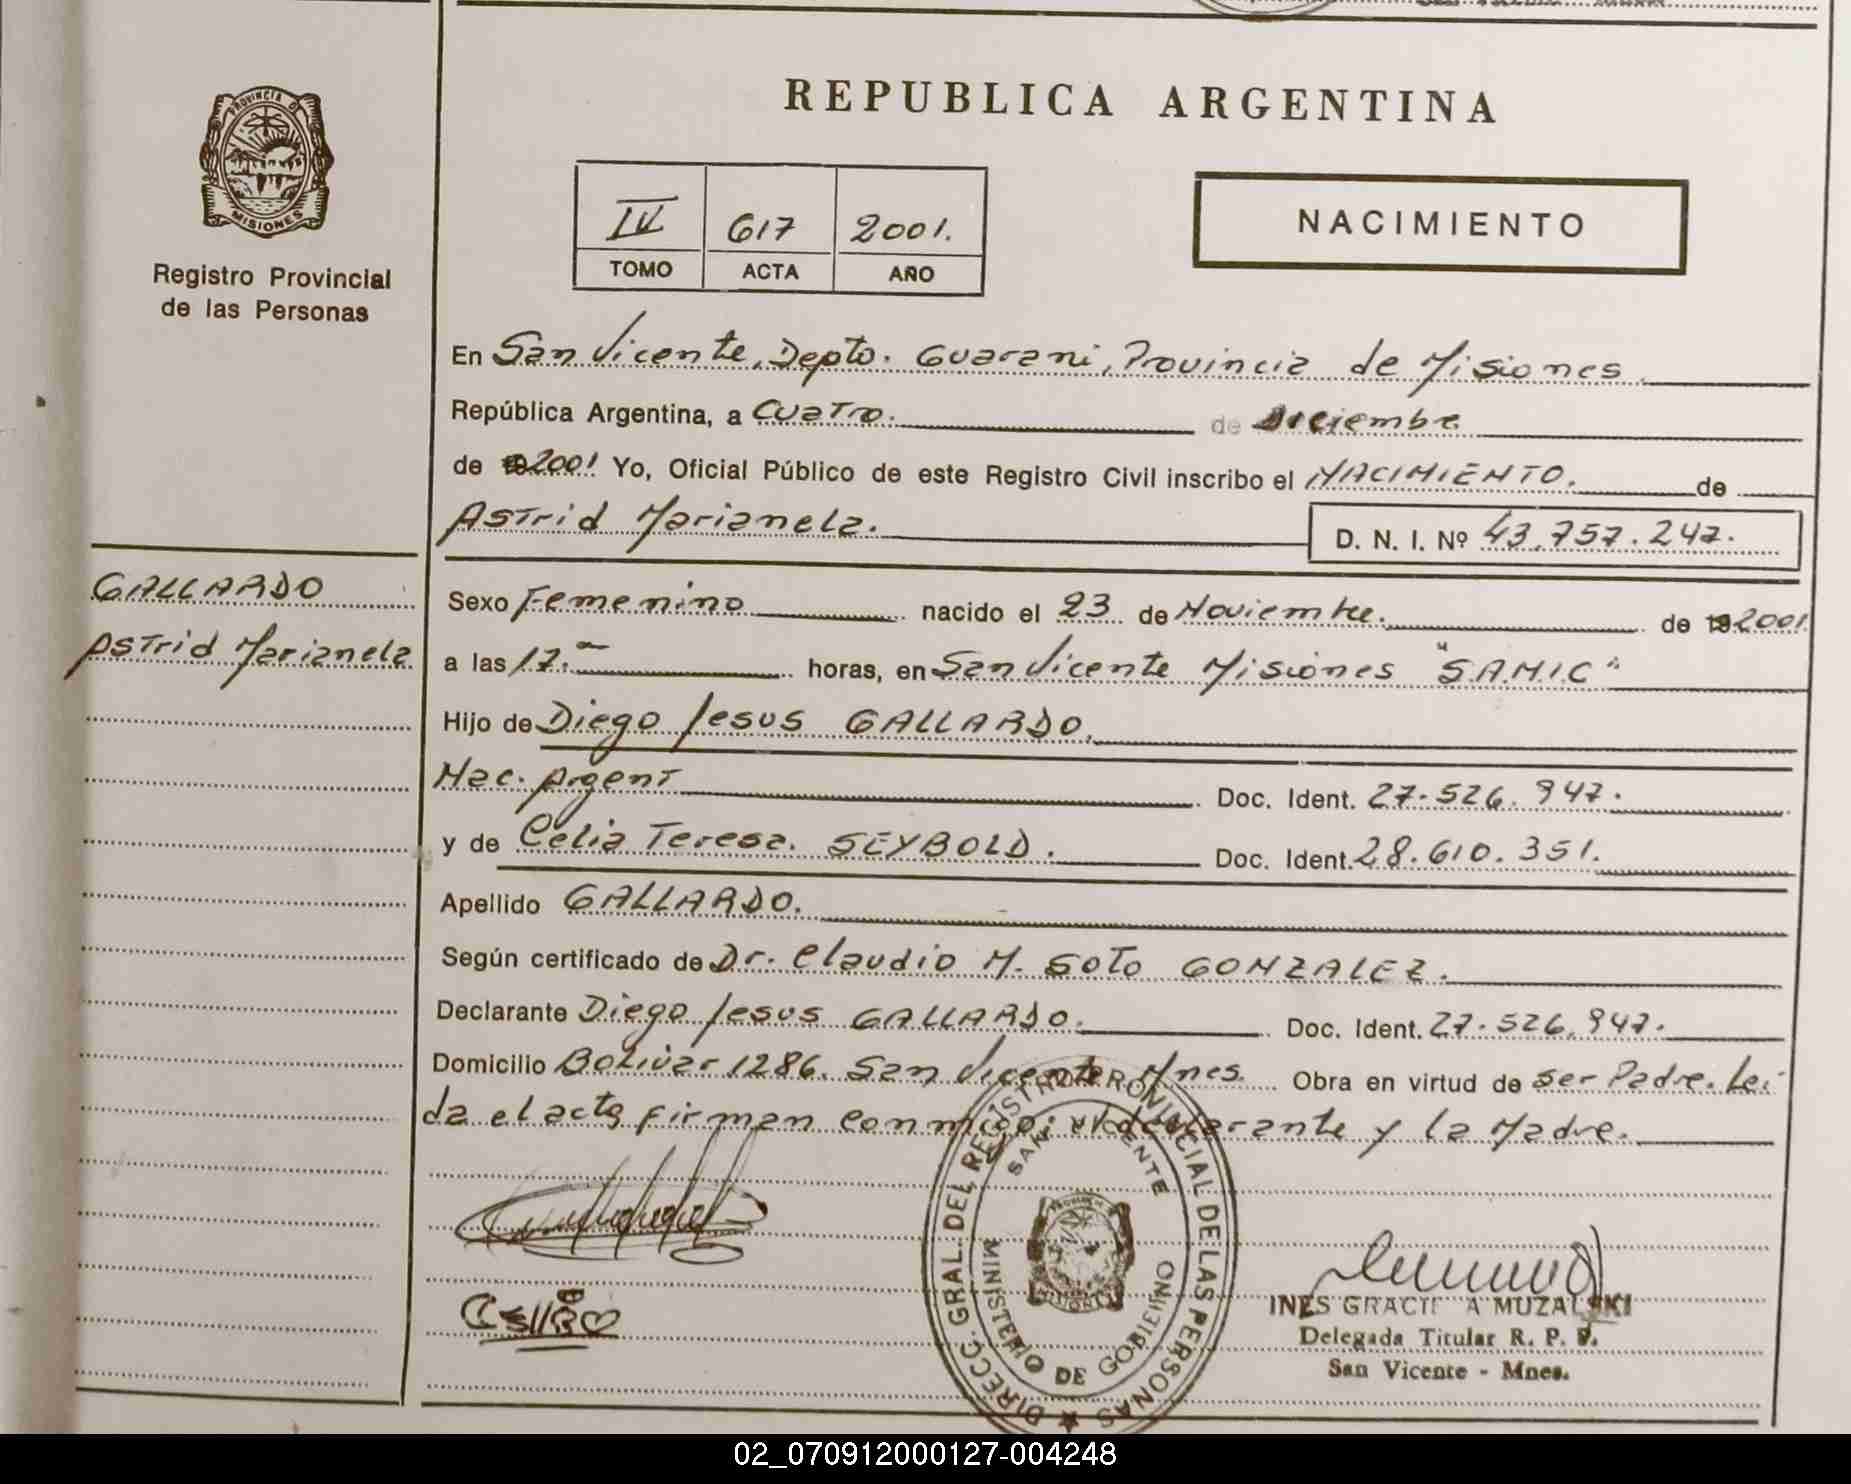 REPUBLICA ARGENTINA
PROVINCIA DE
MISIONES
Registro Provincial
de las Personas
IV 617 2001.
TOMO ACTA AÑO
NACIMIENTO
En San Vicente, Depto. Guarani, Provincia de Misiones
República Argentina, a Cuatro. de Diciembre
de 2001 Yo, Oficial Público de este Registro Civil inscribo el NACIMIENTO. de
Astrid Marianela. D. N. I. Nº 43.757.247.
GALLARDO
Astrid Marianela
Sexo Femenino nacido el 23 de Noviembre. de 2001
a las 17.- horas, en San Vicente Misiones "S.A.M.I.C"
Hijo de Diego Jesus GALLARDO.
Nac. Argent Doc. Ident. 27.526.947.
y de Celia Teresa. SEYBOLD. Doc. Ident. 28.610.351.
Apellido GALLARDO.
Según certificado de Dr. Claudio M. SOTO GONZALEZ.
Declarante Diego Jesus GALLARDO. Doc. Ident. 27.526.947.
Domicilio Bolivar 1286. San Vicente Mnes. Obra en virtud de ser Padre. Lei
da el acta firman conmigo: el declarante y la Madre.
DIRECC. GRAL. DEL REGISTRO PROVINCIAL DE LAS PERSONAS
SAN VICENTE
MINISTERIO DE GOBIERNO
INES GRACIELA MUZALSKI
Delegada Titular R. P. P.
San Vicente - Mnes.
02_070912000127-004248